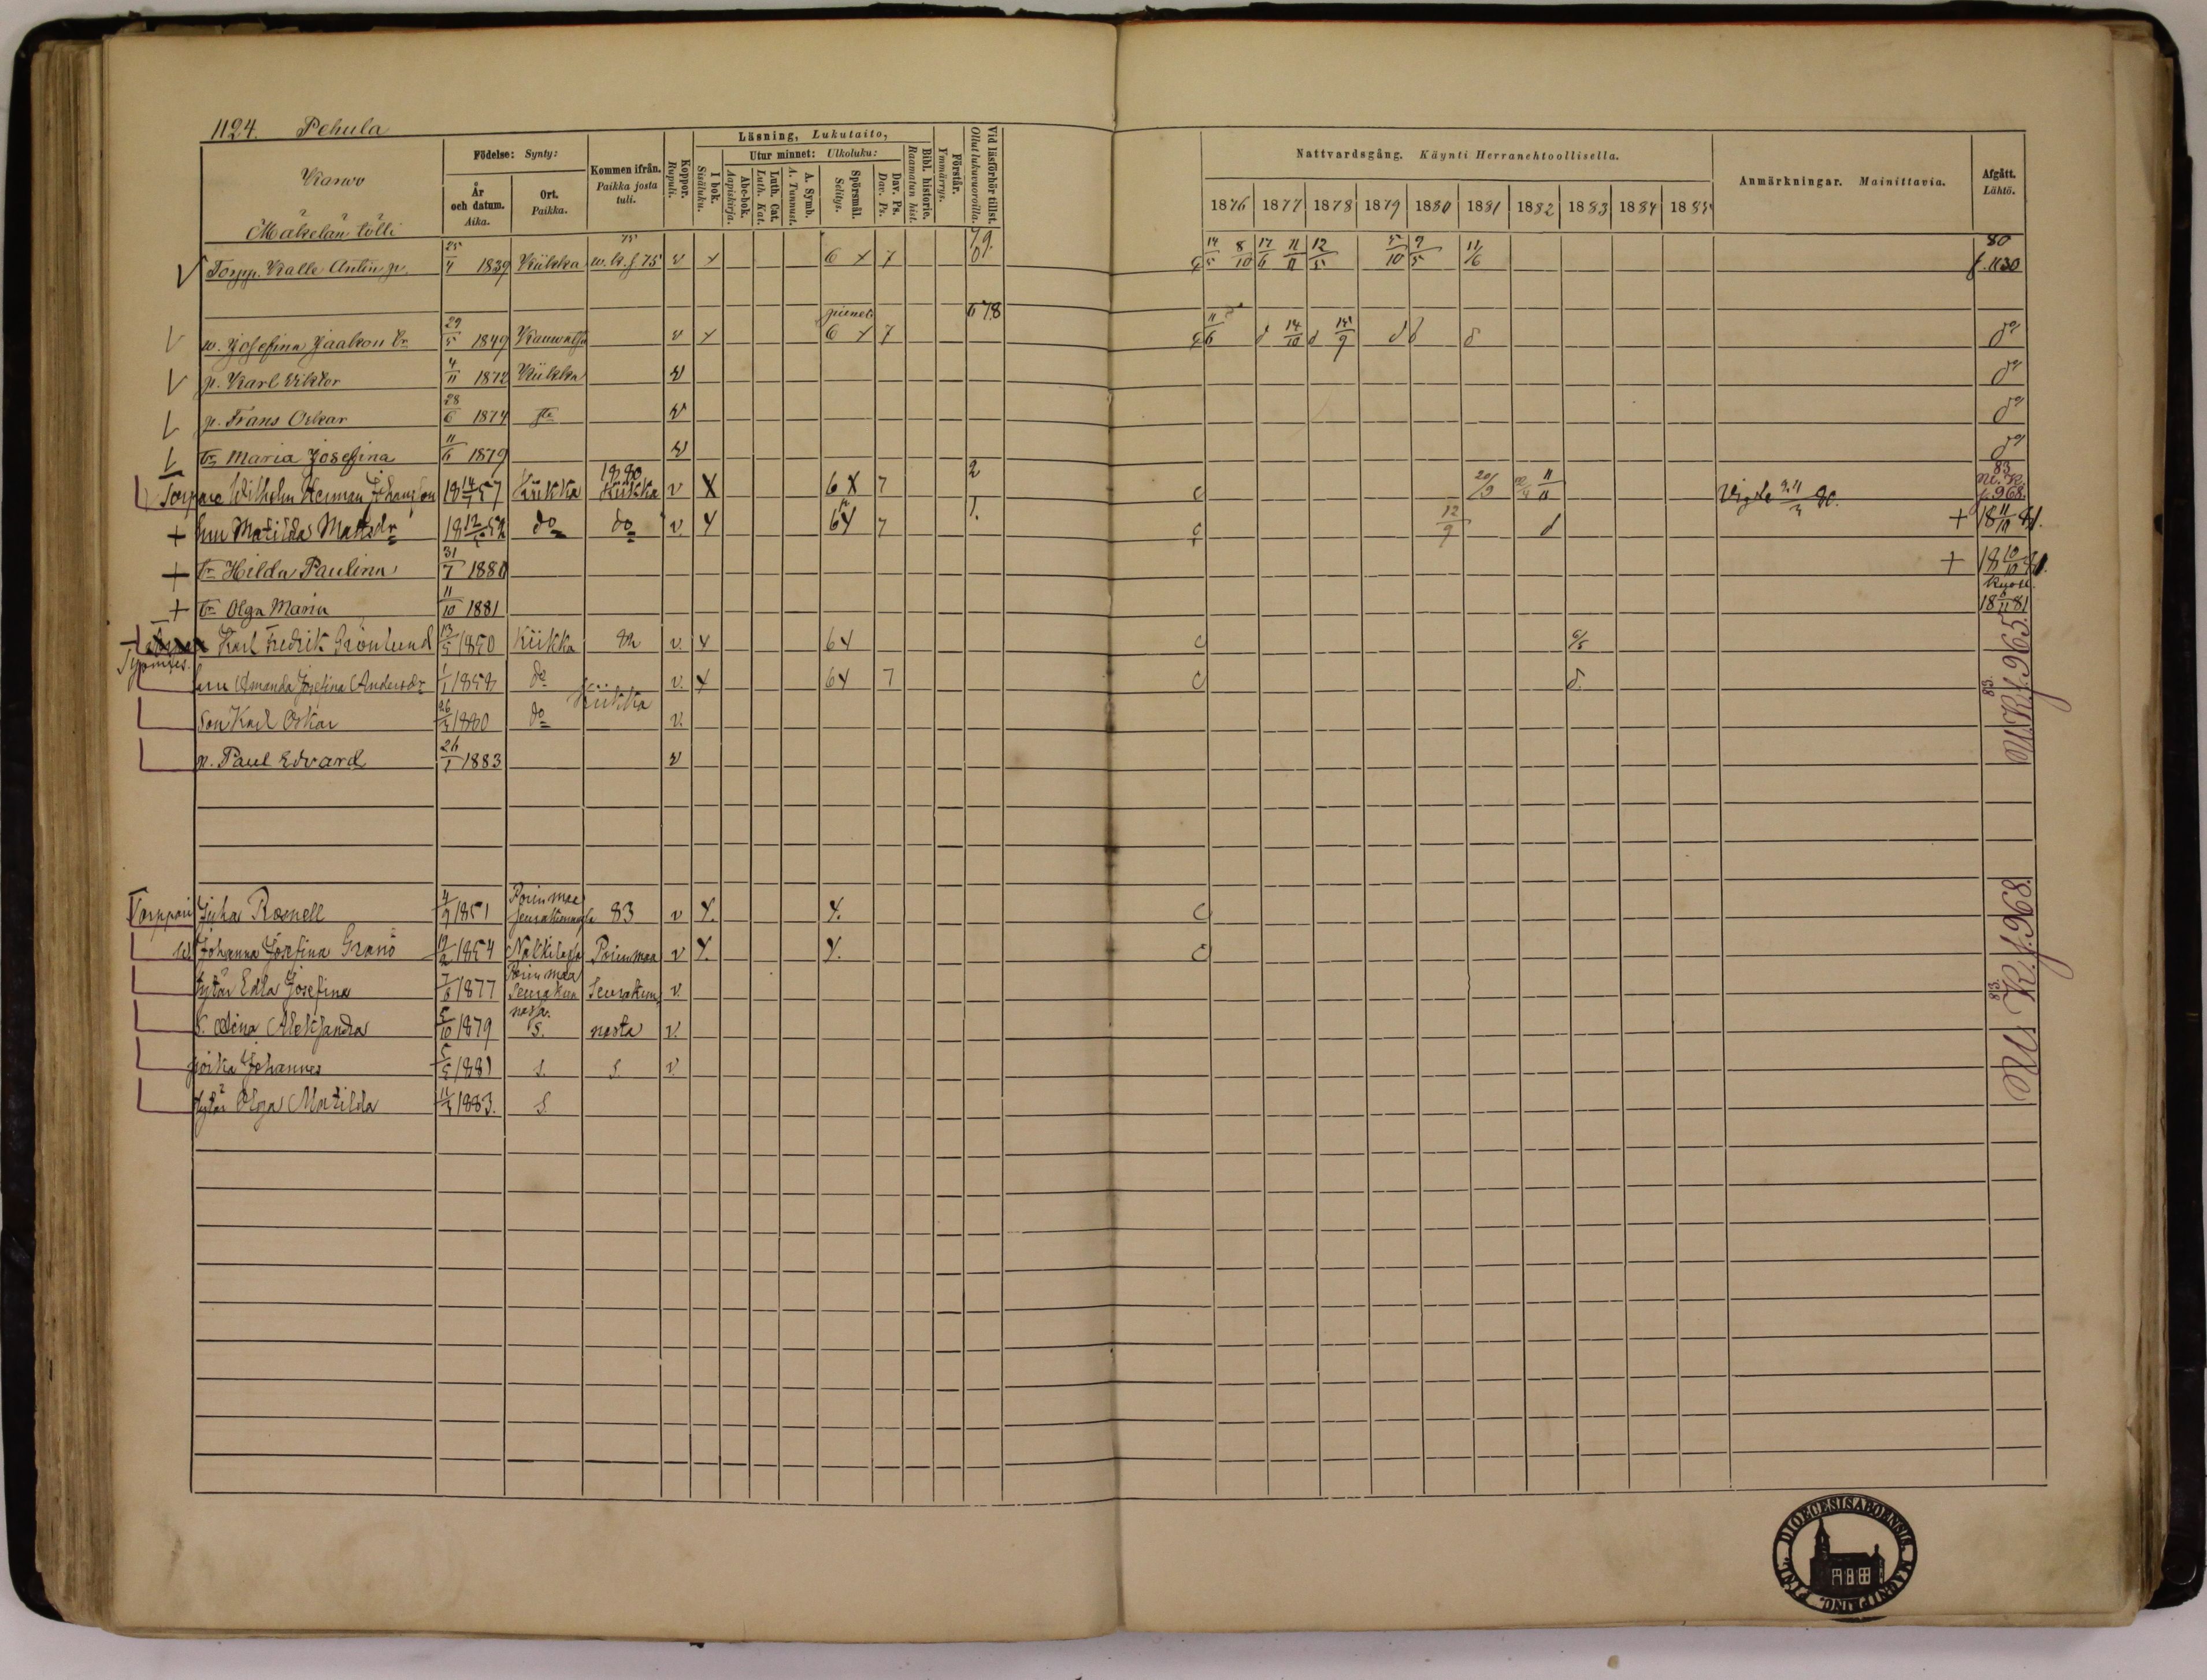 1124. Pehula
Karwo
Mäkelän tölli
Födelse: Synty:
År och datum. Aika.
Ort. Paikka.
Kommen ifrån. Paikka josta tuli.
Koppor. Rupuli.
Läsning, Lukutaito,
I bok. Sisäluku.
Utur minnet: Ulkoluku:
Abc-bok. Aapiskirja.
Luth. Cat. Luth. Kat.
A. Symb. A. Tunnust.
Spörsmål. Selitys.
Dav. Ps. Dav. Ps.
Bibl. historie. Raamatun hist.
Förstår. Ymmärrys.
Vid läsförhör tillst. Ollut lukuvuoroilla.
Nattvardsgång. Käynti Herranehtoollisella.
1876 1877 1878 1879 1880 1881 1882 1883 1884 1885
Anmärkningar. Mainittavia.
Afgått. Lähtö.
Torpp. Kalle Antin p. 25/4 1839 Kiikka w. k. f. 75 v x 6 x 7 79. 14/5 8/10 17/6 11/11 12/5 5/10 9/5 11/6 80 f. 1130
w. Josefina Jaakon tr. 29/5 1849 Kauwatsa v x 6 x 7 78 11/6 d 14/10 d 15/9 d d d do
p. Karl Viktor 4/11 1872 Kiikka v do
p. Frans Oskar 28/6 1874 v do
tr. Maria Josefina 11/6 1879 v do
Torppare Wilhelm Herman Johansson 18 14/7 57 Kiikka 1880 Kiikka v X 6 X 7 2 20/3 11/11 Vigde 80. 83 f. 968.
hu Matilda Matsdr do do v. x 6x 7 1. 12/9 d + 18 11/10 81.
+ tr Hilda Paulina 31/7 1880 + 18 10/10 81.
+ tr Olga Maria 11/10 1881 kuoll. 18 6/11 81
Karl Fredrik Grönlund 13/5 1850 Kiikka v. x 6x 6/5
Työmies.
hu Amanda Josefina Andersdr 1/1 do Kiikka v. x 6x 7 d.
Son Karl Oskar 1880 do v.
p. Paul Edvard 26/1 1883 v
83. f. 965.
Torppari Juha Rosnell 4/9 1851 Porin maa seurakunnassa 83 v x. x.
w. Johanna Josefina Granö 1854 Nakkilassa Porin maa v x. x.
tytär Edla Josefina 7/8 1877 Porin maa Seurakun nassa. Seurakun v.
t. Aina Aleksandra 5/10 1879 S. nasta v.
poika Johannes 5/5 1881 S. S. v.
tytär Olga Matilda 1883. S.
83. K. f. 968.
FINL. DIOECESIS ABOENSIS. MAGNI PRINC.